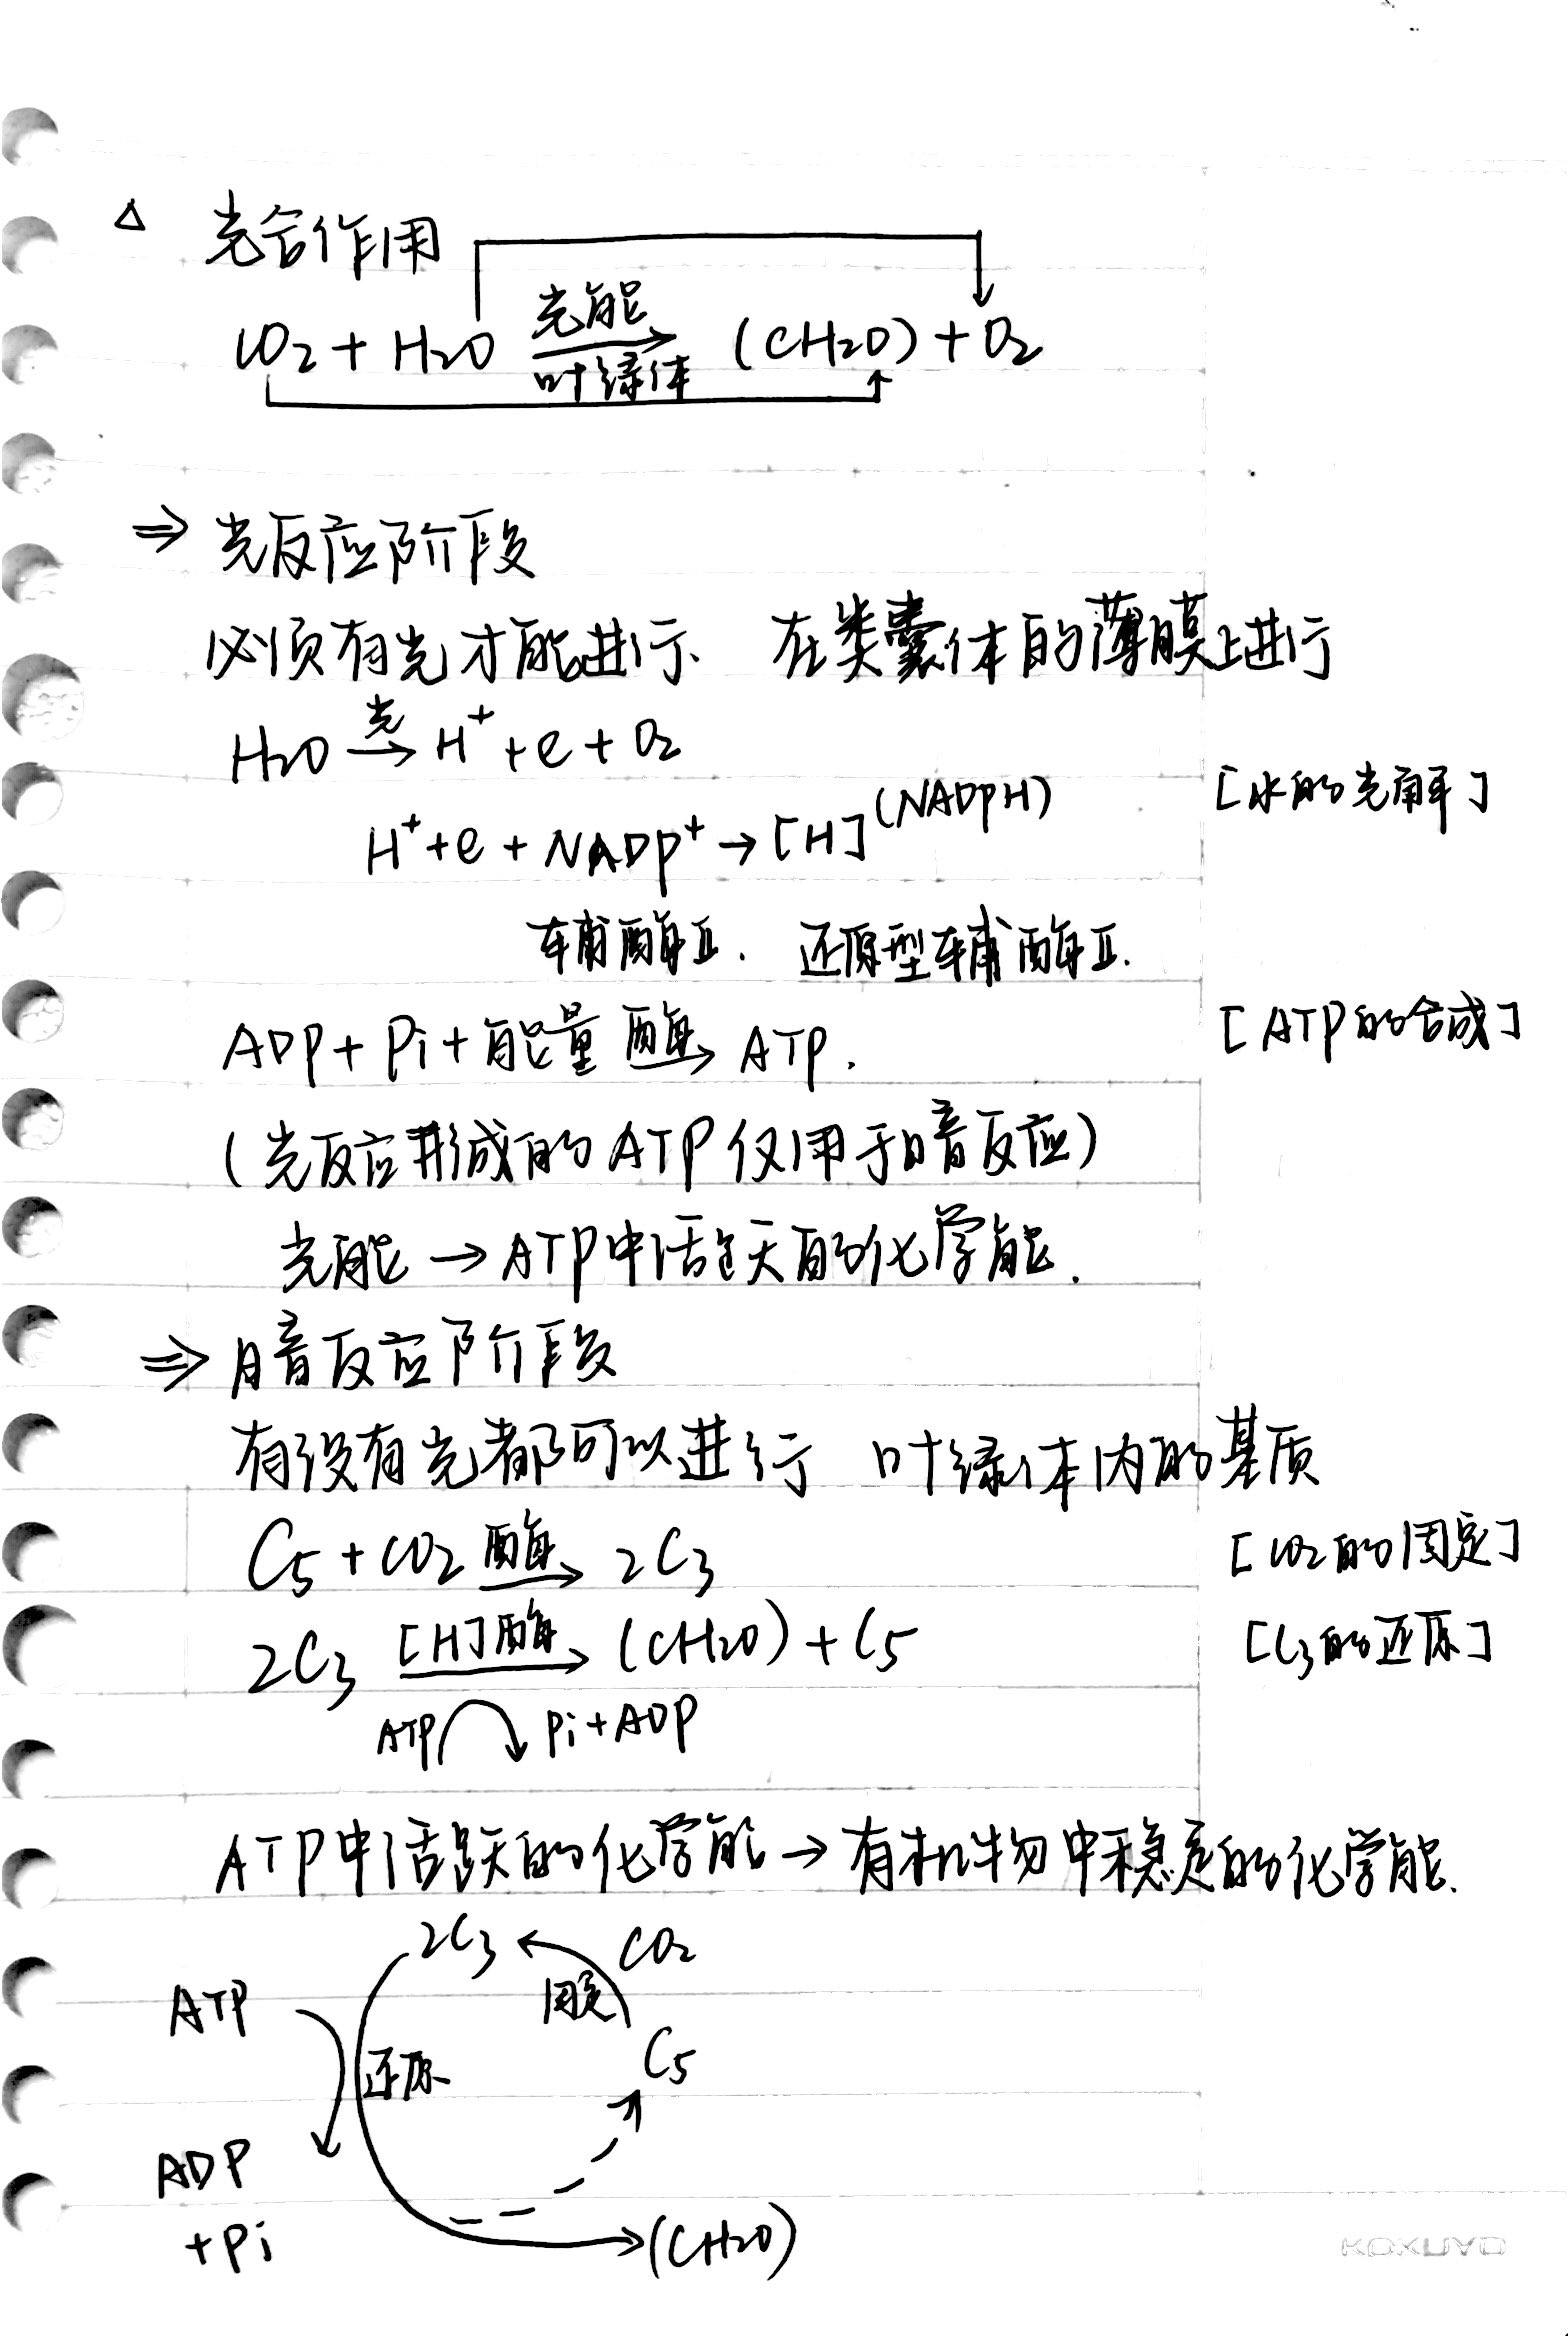 △ 光合作用
CO₂ + H₂O 光能→叶绿体 (CH₂O) + O₂
⇒ 光反应阶段
必须有光才能进行、 在类囊体的薄膜上进行
H₂O 光→ H⁺ + e + O₂
[水的光解]
H⁺ + e + NADP⁺ → [H] (NADPH)
辅酶Ⅱ. 还原型辅酶Ⅱ.
ADP + Pi + 能量 酶→ ATP. [ATP的合成]
(光反应形成的ATP仅用于暗反应)
光能 → ATP中活跃的化学能.
⇒ 暗反应阶段
有没有光都可以进行 叶绿体内的基质
C₅ + CO₂ 酶→ 2C₃ [CO₂的固定]
2C₃ [H]酶→ (CH₂O) + C₅ [C₃的还原]
ATP Pi + ADP
ATP中活跃的化学能 → 有机物中稳定的化学能.
2C₃ CO₂
ATP 固定
还原 C₅
ADP
+ Pi (CH₂O)
KOKUYO